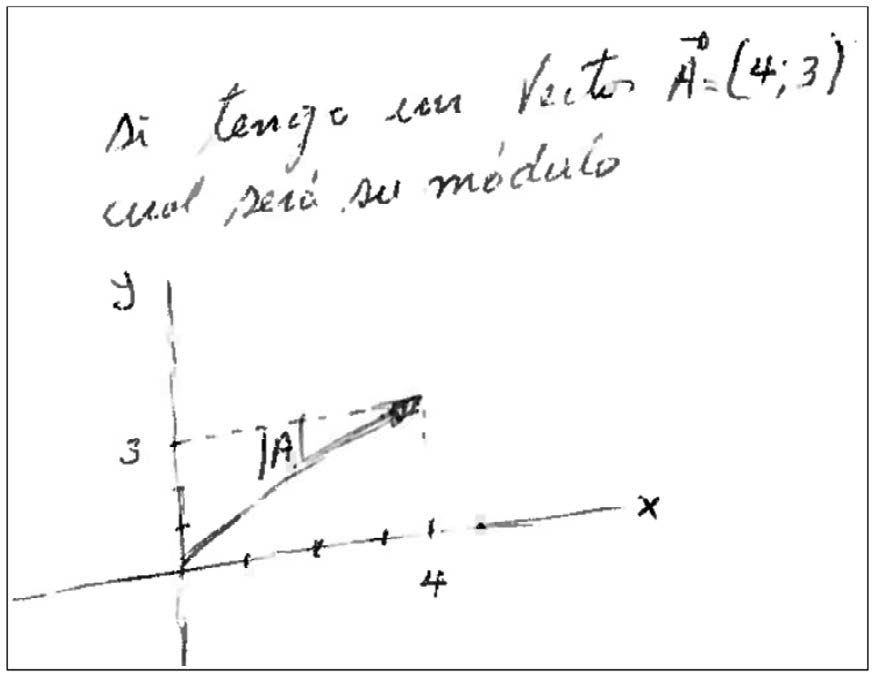 si tengo un Vector A⃗=(4;3)
cual será su módulo
y
3
|A|
x
4